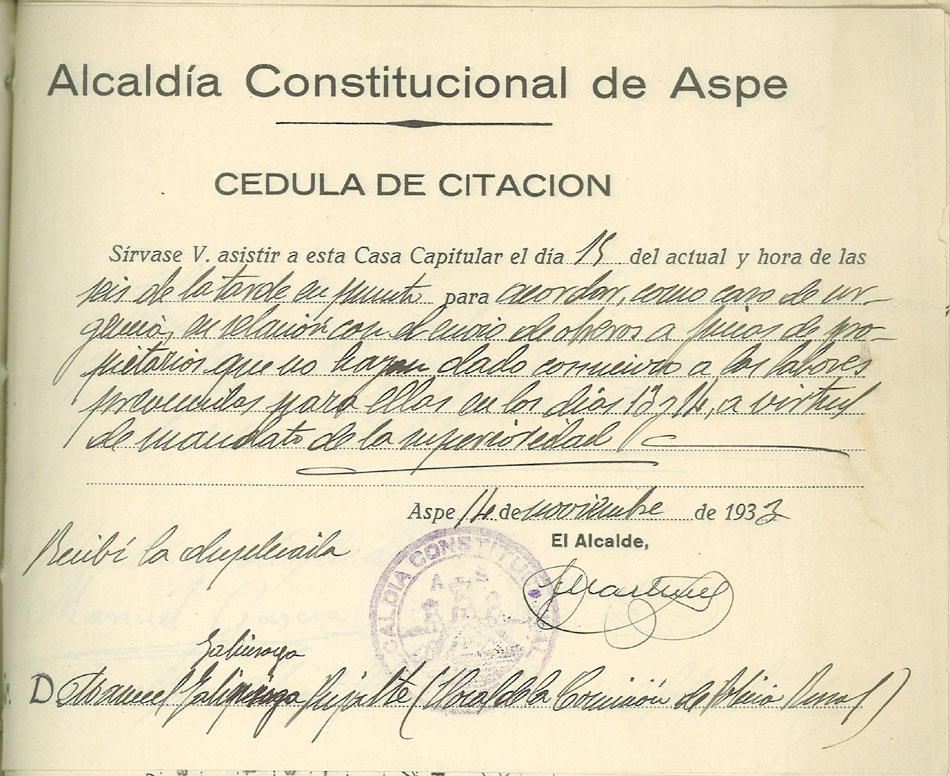 Alcaldía Constitucional de Aspe
CEDULA DE CITACION
Sírvase V. asistir a esta Casa Capitular el día 15 del actual y hora de las
seis de la tarde en punto para acordar, como caso de ur-
gencia, en relación con el envío de obreros a fincas de pro-
pietarios que no hayan dado comienzo a las labores
para ellas en los días 13 y 14, a virtud
de mandato de la superioridad
Aspe 14 de noviembre de 1933
El Alcalde,
Recibí la duplicada
ALCALDIA CONSTITUCIONAL
Manuel García
Galinsoga
D. Manuel Galinsoga (Vocal de la Comisión de Policía Rural)